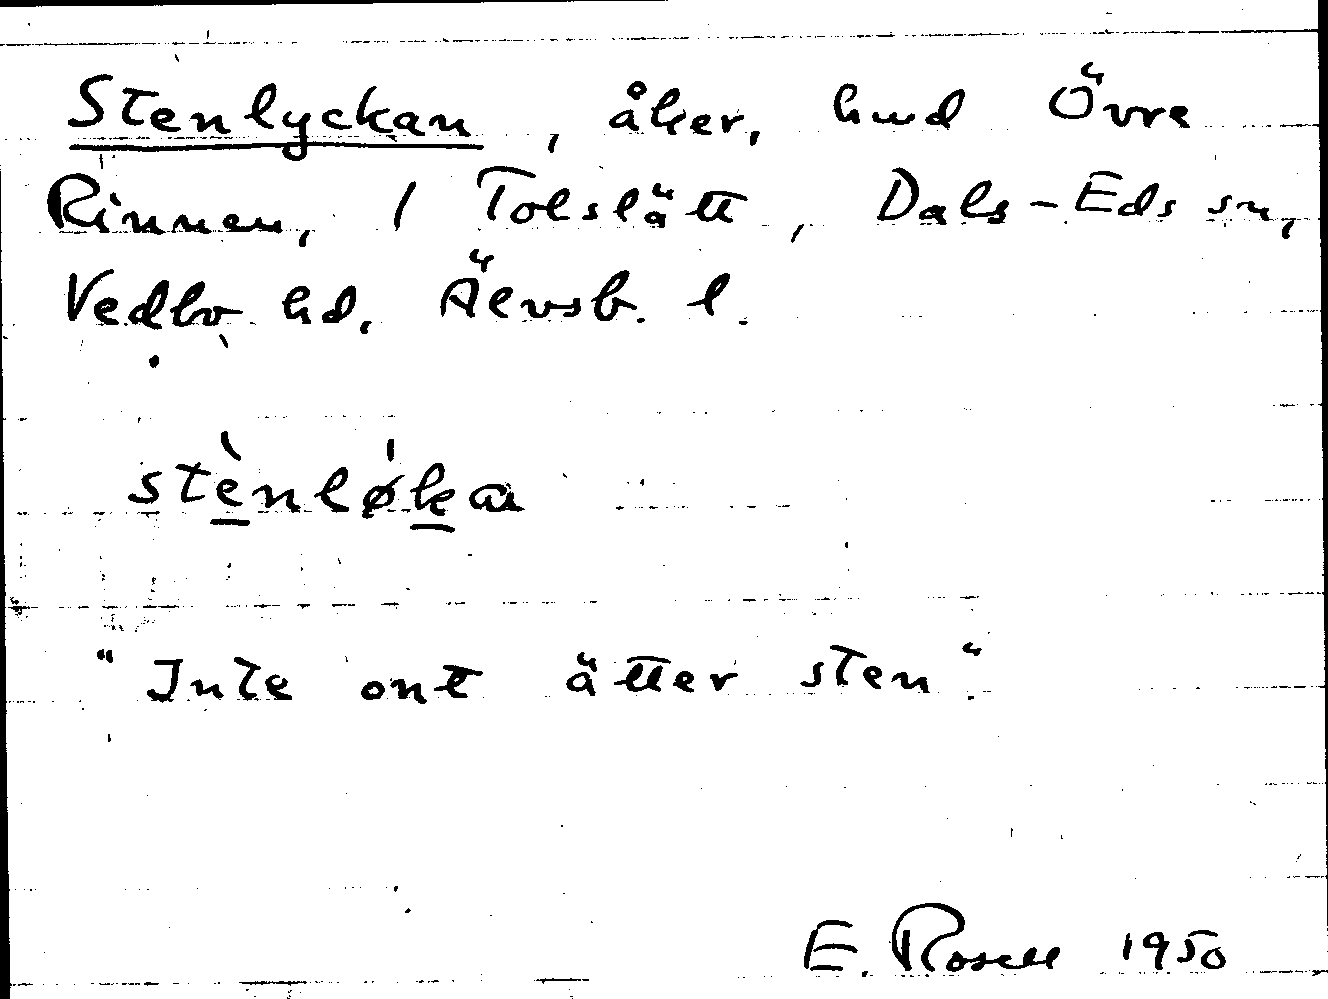 Stenlyckan, åker, hmd Övre
Rinnen, 1 Tolslätt, Dals-Eds sn,
Vedbo hd, Älvsb. l.
stènløka
"Inte ont ätter sten".
E. Rosell 1950